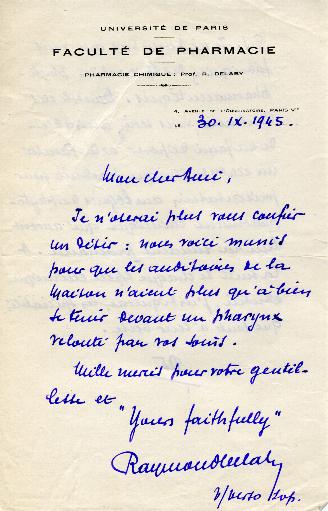 UNIVERSITÉ DE PARIS
FACULTÉ DE PHARMACIE
PHARMACIE CHIMIQUE : Prof. R. DELABY
4, AVENUE DE L'OBSERVATOIRE, PARIS-VIe
LE 30.IX.1945.
Mon cher Ami,
Je n'oserai plus vous confier
un désir : nous voici munis
pour que les auditoires de la
Maison n'aient plus qu'à bien
se tenir devant un pharynx
velouté par vos soins.
Mille mercis pour votre gentil-
lesse et
"Yours faithfully"
Raymond Delaby